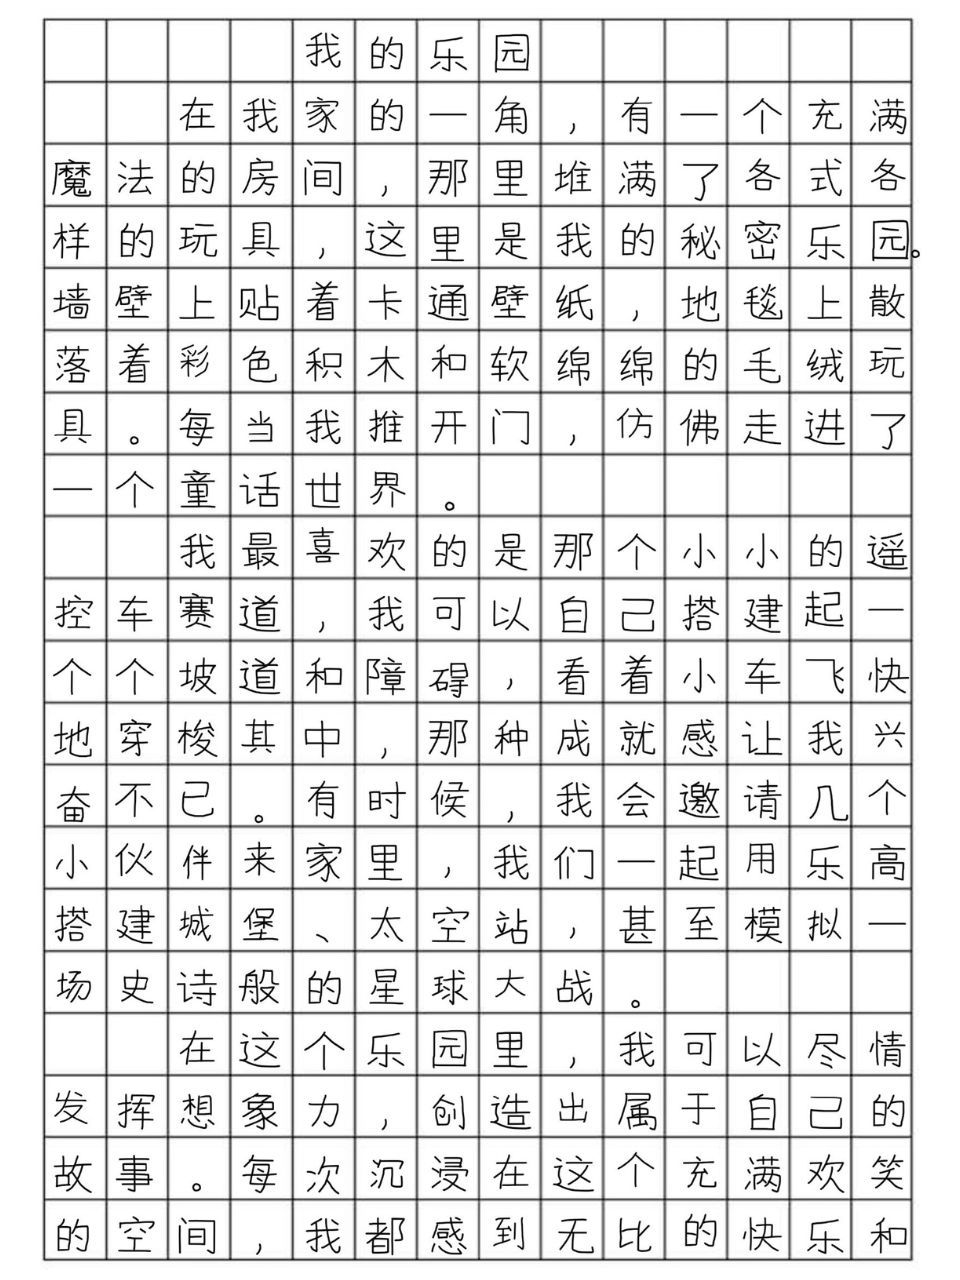 我的乐园
在我家的一角,有一个充满
魔法的房间,那里堆满了各式各
样的玩具,这里是我的秘密乐园。
墙壁上贴着卡通壁纸,地毯上散
落着彩色积木和软绵绵的毛绒玩
具。每当我推开门,仿佛走进了
一个童话世界。
我最喜欢的是那个小小的遥
控车赛道,我可以自己搭建起一
个个坡道和障碍,看着小车飞快
地穿梭其中,那种成就感让我兴
奋不已。有时候,我会邀请几个
小伙伴来家里,我们一起用乐高
搭建城堡、太空站,甚至模拟一
场史诗般的星球大战。
在这个乐园里,我可以尽情
发挥想象力,创造出属于自己的
故事。每次沉浸在这个充满欢笑
的空间,我都感到无比的快乐和